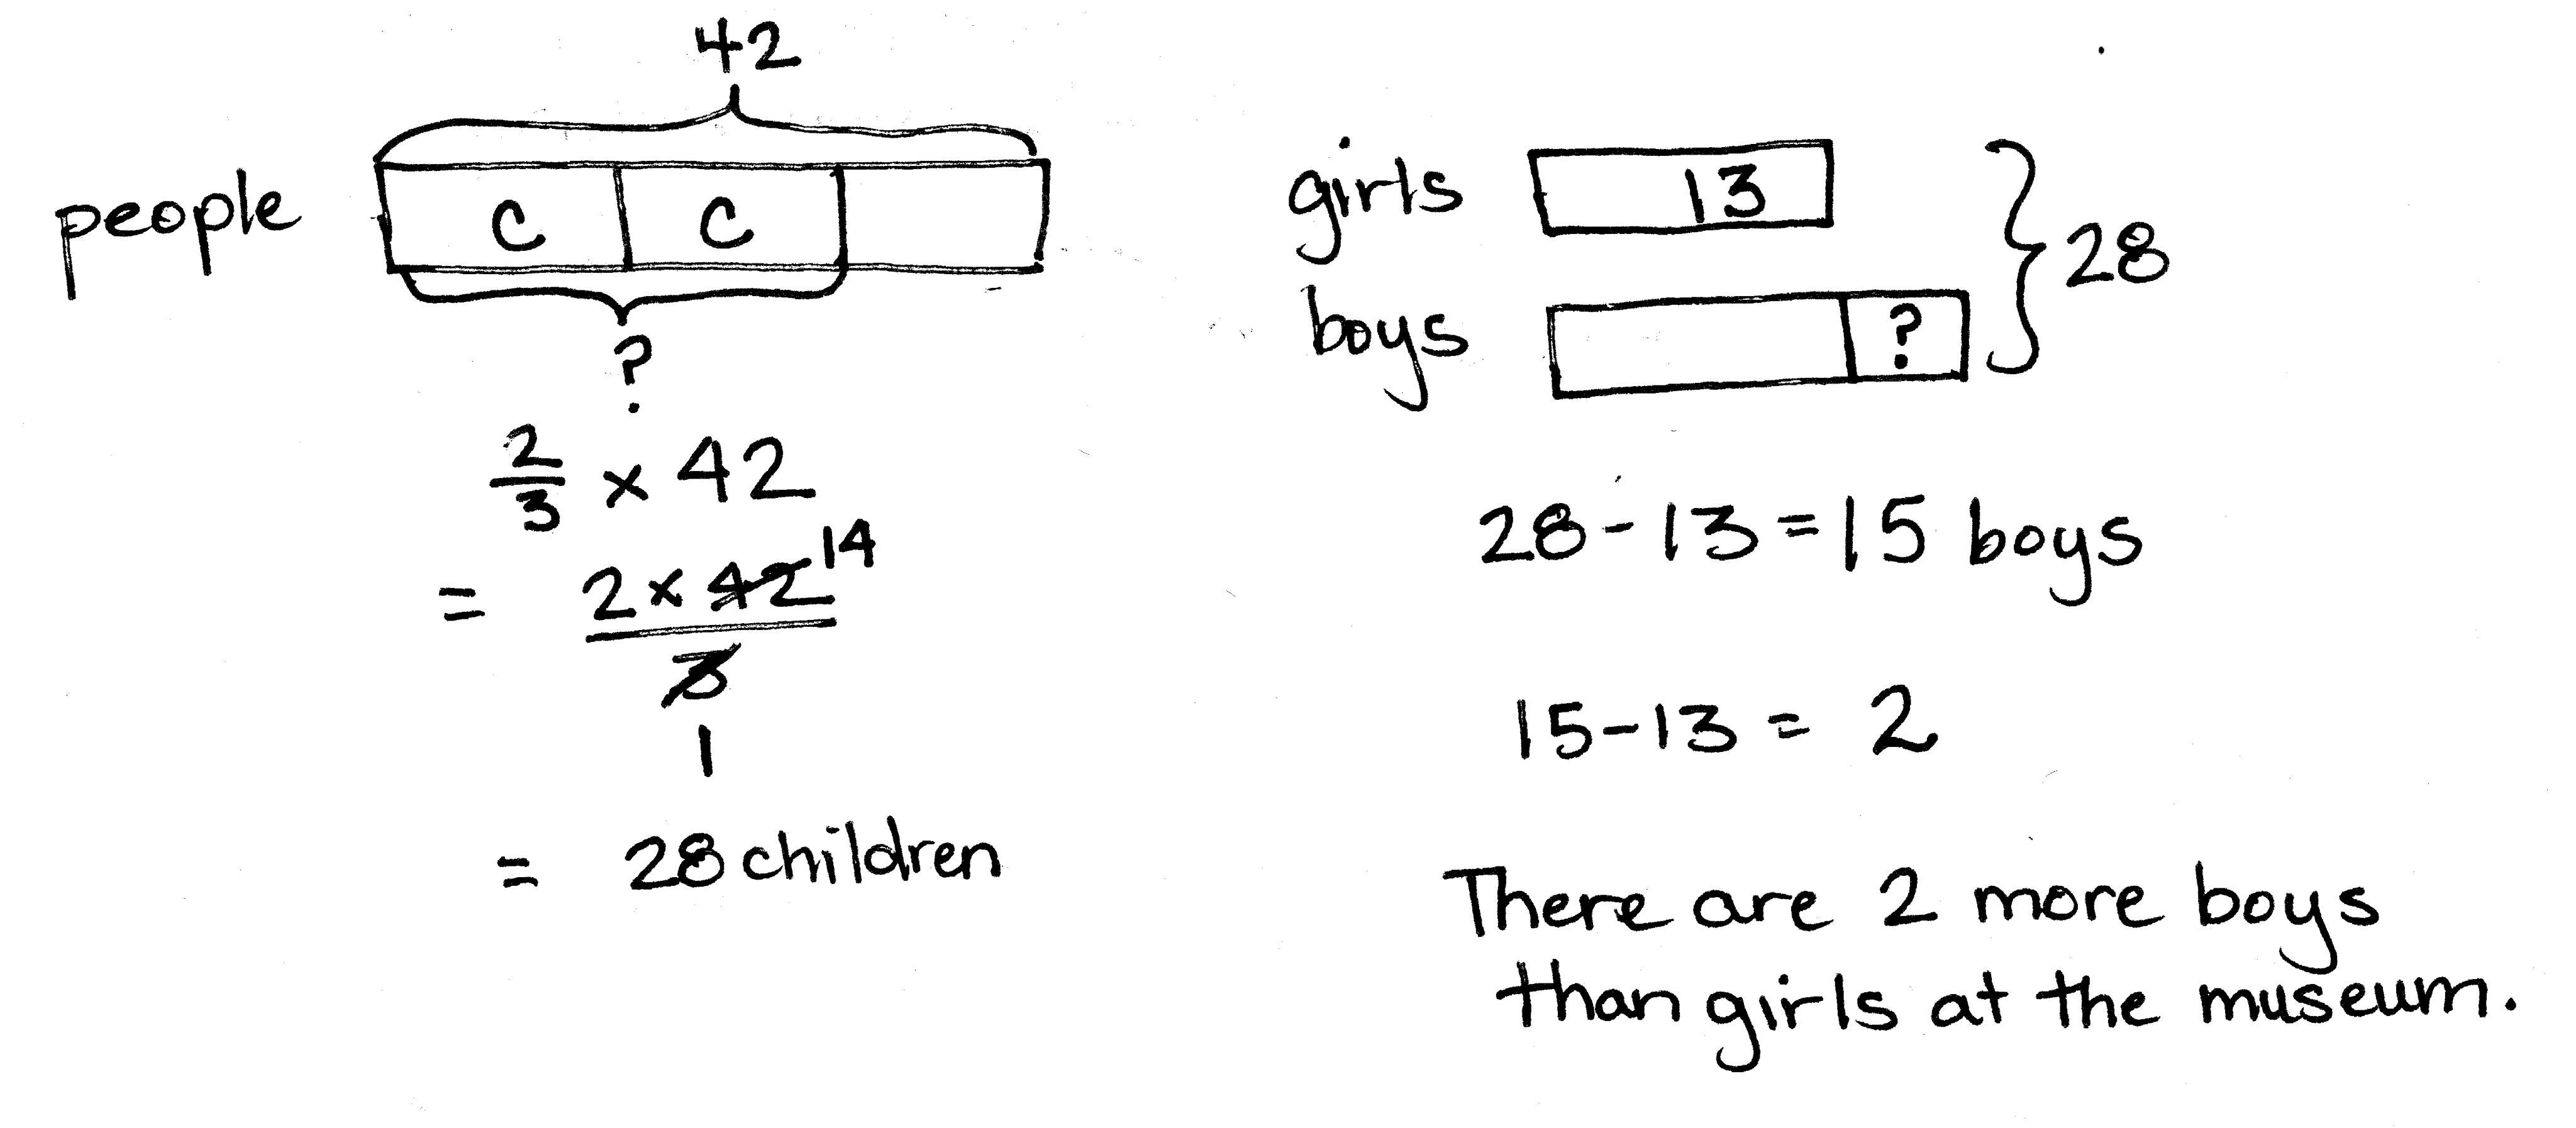 42
people
C C
?
2/3 × 42
= 2 × 42 14
3
1
= 28 children
girls 13
boys ?
28
28 - 13 = 15 boys
15 - 13 = 2
There are 2 more boys
than girls at the museum.